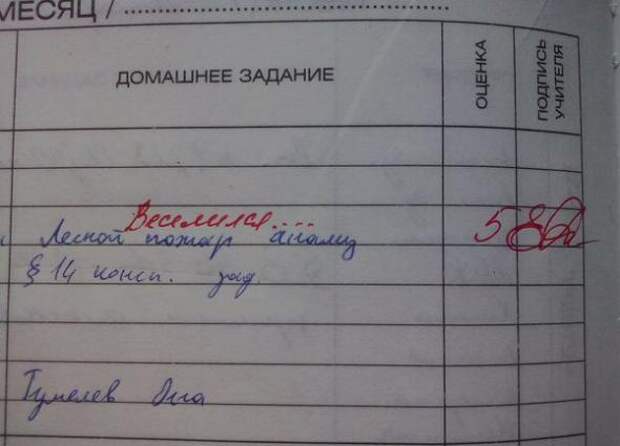 МЕСЯЦ /
ДОМАШНЕЕ ЗАДАНИЕ
ОЦЕНКА
ПОДПИСЬ УЧИТЕЛЯ
Веселился....
Лесной пожар анализ
5
§ 14 консп. зад.
Тумелев Она